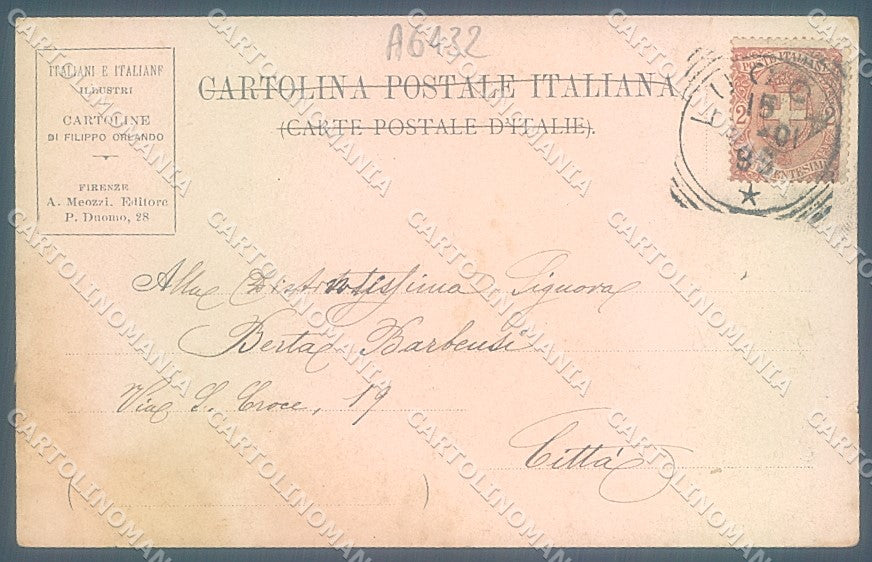 A6432
ITALIANI E ITALIANE
ILLUSTRI
CARTOLINE
DI FILIPPO ORLANDO
FIRENZE
A. Meozzi. Editore
P. Duomo, 28
CARTOLINA POSTALE ITALIANA
(CARTE POSTALE D'ITALIE).
POSTE ITALIANE
2 2
CENTESIMI
15
-01
Alla Distintissima Signora
Berta Barbensi
Via S. Croce, 19
Città
( )
CARTOLINOMANIA